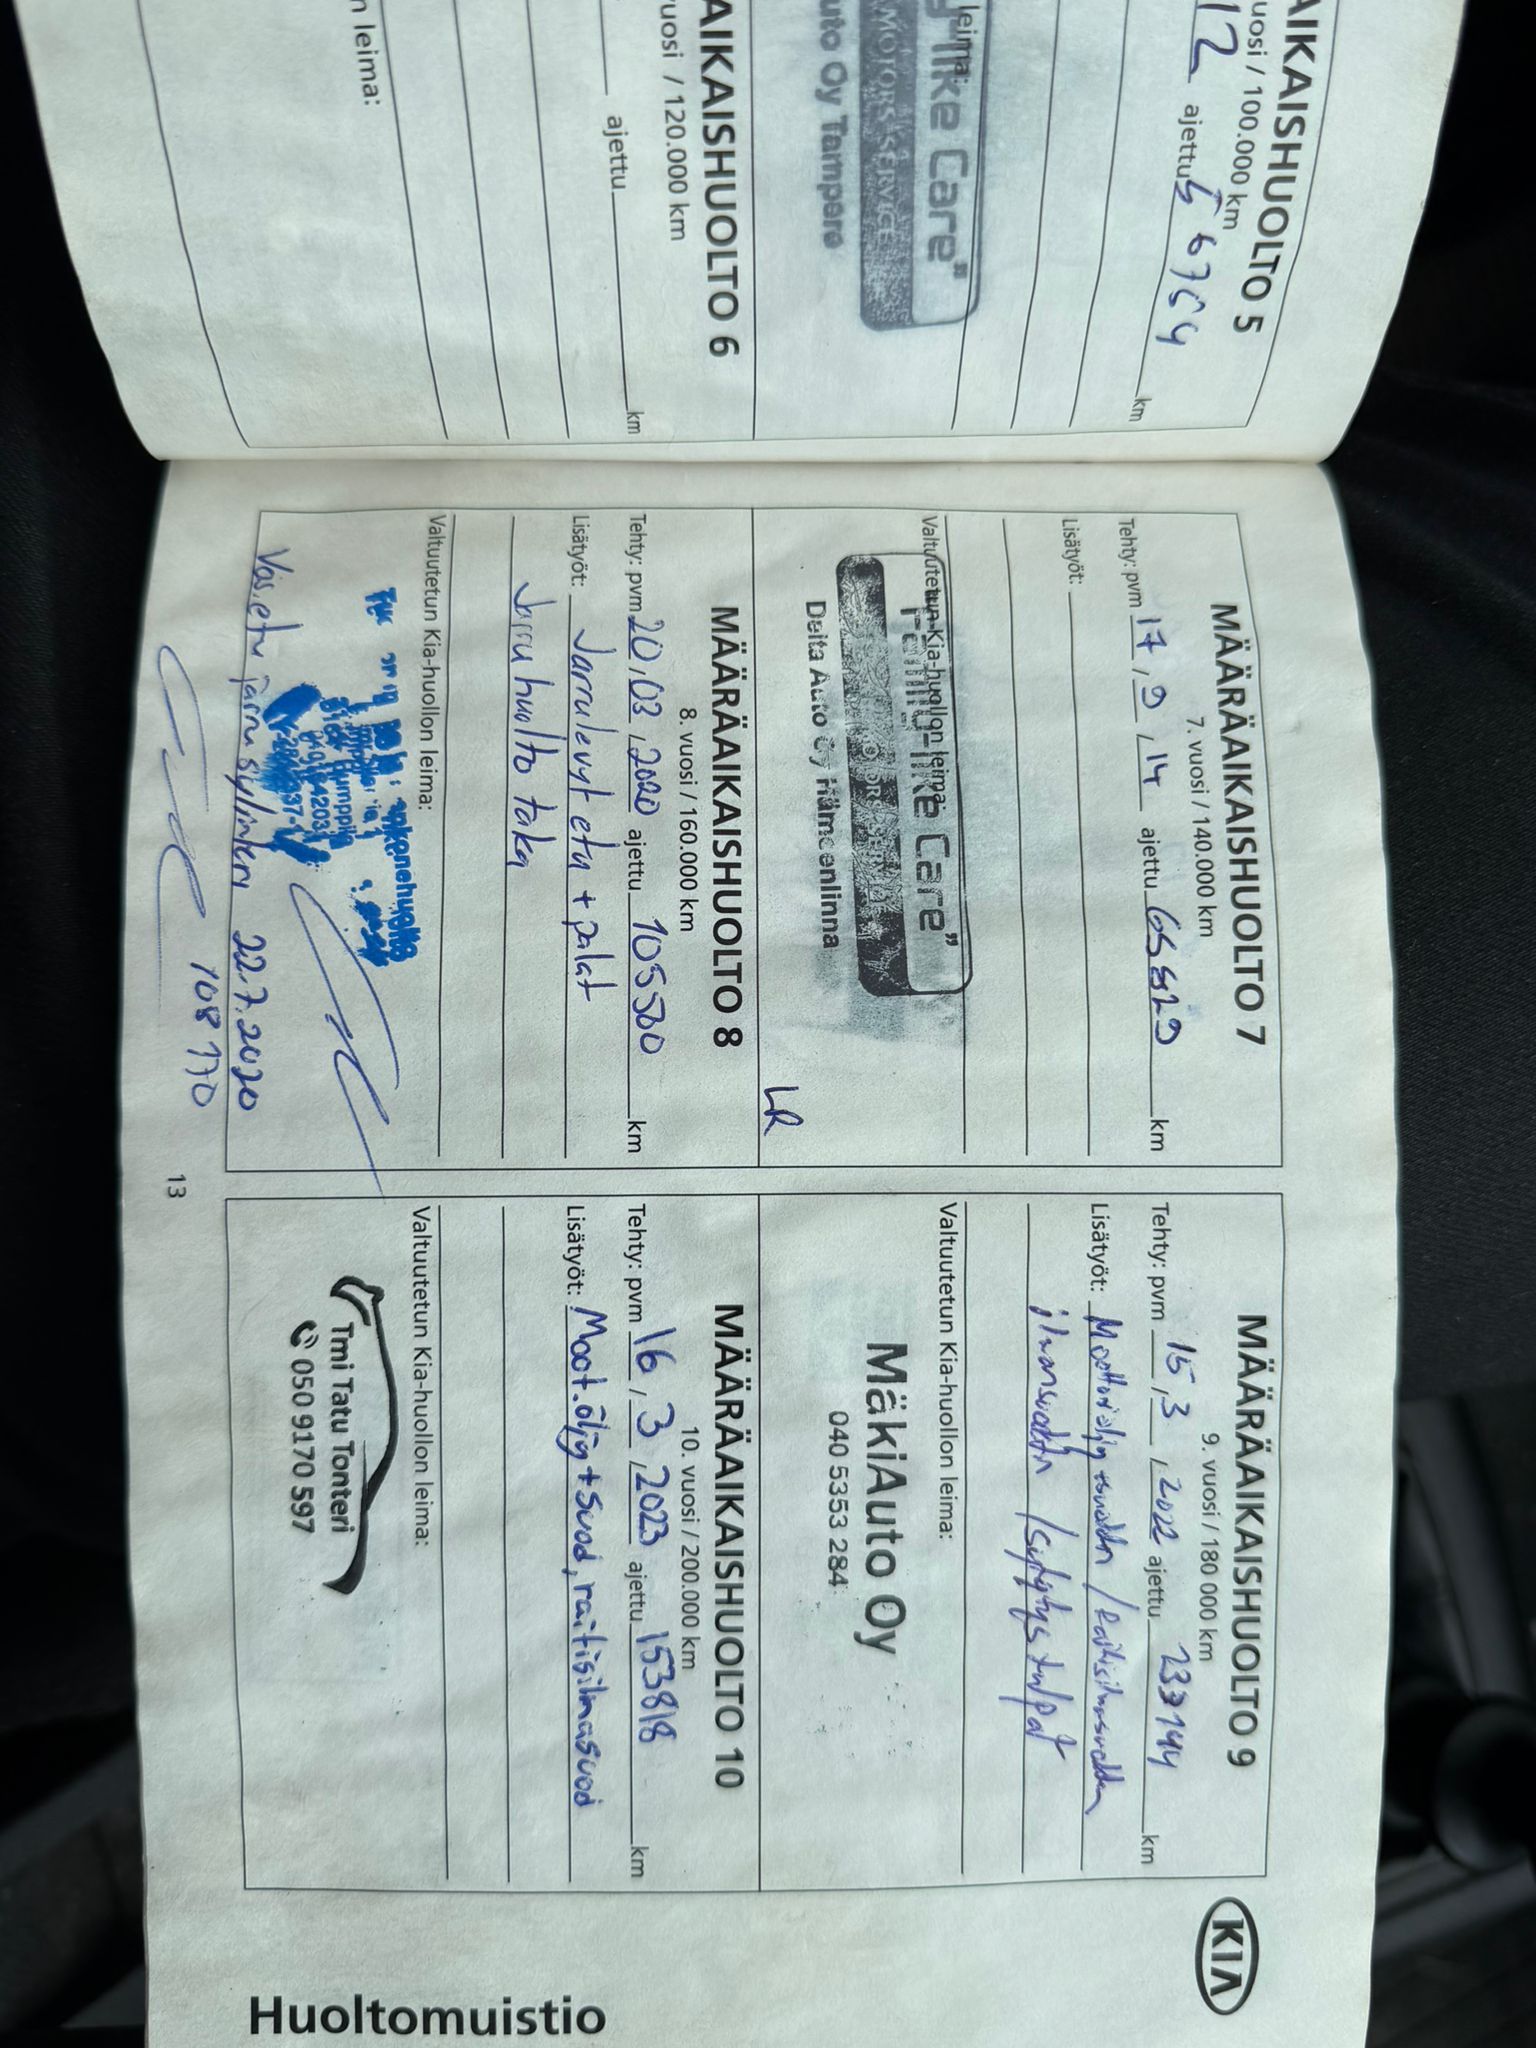 AIKAISHUOLTO 5
uosi / 100.000 km
12 ajettu 56754 km
leima:
ike Care"
MOTORS SERVICE
uto Oy Tampere
AIKAISHUOLTO 6
uosi / 120.000 km
ajettu km
n leima:
MÄÄRÄAIKAISHUOLTO 7
7. vuosi / 140.000 km
Tehty: pvm 17, 9, 14 ajettu km
Lisätyöt:
Valtuutetun Kia-huollon leima:
Family-like Care"
Delta Auto Oy Hämeenlinna
LR
MÄÄRÄAIKAISHUOLTO 8
8. vuosi / 160.000 km
Tehty: pvm 20, 03, 2020 ajettu 105500 km
Lisätyöt: Jarrulevyt etu + palat
Jarru huolto taka
Valtuutetun Kia-huollon leima:
Vas.etu jarru sylinteri 22.7.2020
108 770
13
MÄÄRÄAIKAISHUOLTO 9
9. vuosi / 180 000 km
Tehty: pvm 15, 3, 2022 ajettu 233144 km
Lisätyöt: Moottoriöljy + suodatin / Raitisilmasuodatin
ilmansuodatin / sytytystulpat
Valtuutetun Kia-huollon leima:
MäkiAuto Oy
040 5353 284
MÄÄRÄAIKAISHUOLTO 10
10. vuosi / 200.000 km
Tehty: pvm 16, 3, 2023 ajettu 153818 km
Lisätyöt: Moot.öljy + suod, raitisilmasuod
Valtuutetun Kia-huollon leima:
Tmi Tatu Tonteri
050 9170 597
KIA
Huoltomuistio